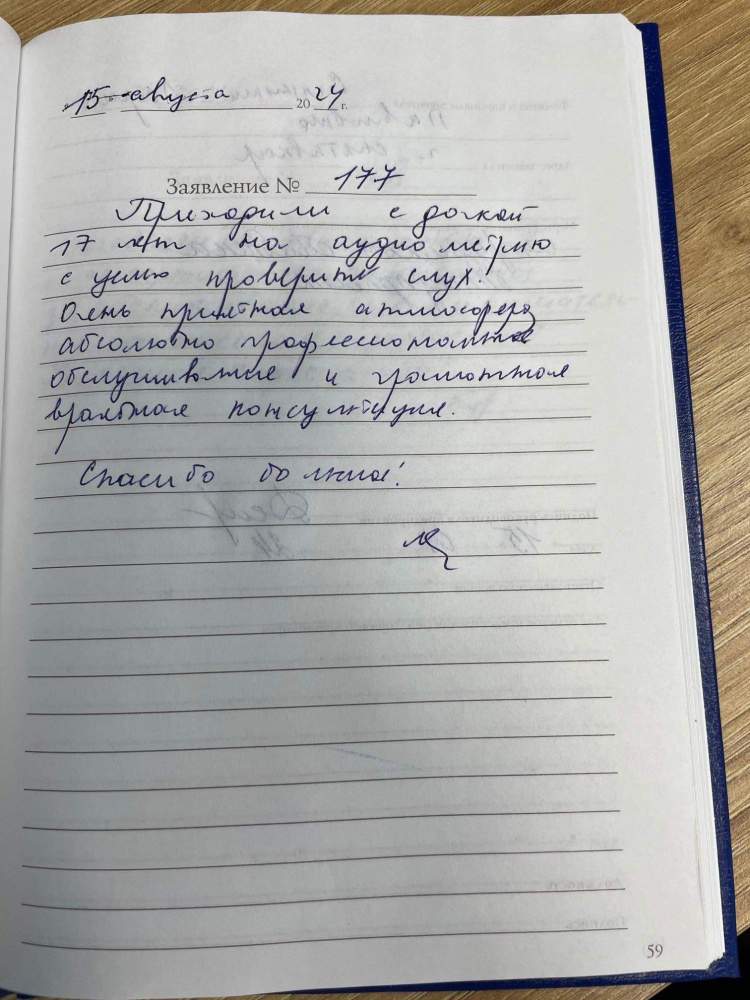 15 августа 2024 г.
Заявление № 177
Приходили с дочкой
17 лет на аудиометрию
с целью проверить слух.
Очень приятная атмосфера,
абсолютно профессиональное
обслуживание и грамотная
врачебная консультация.
Спасибо большое!
59